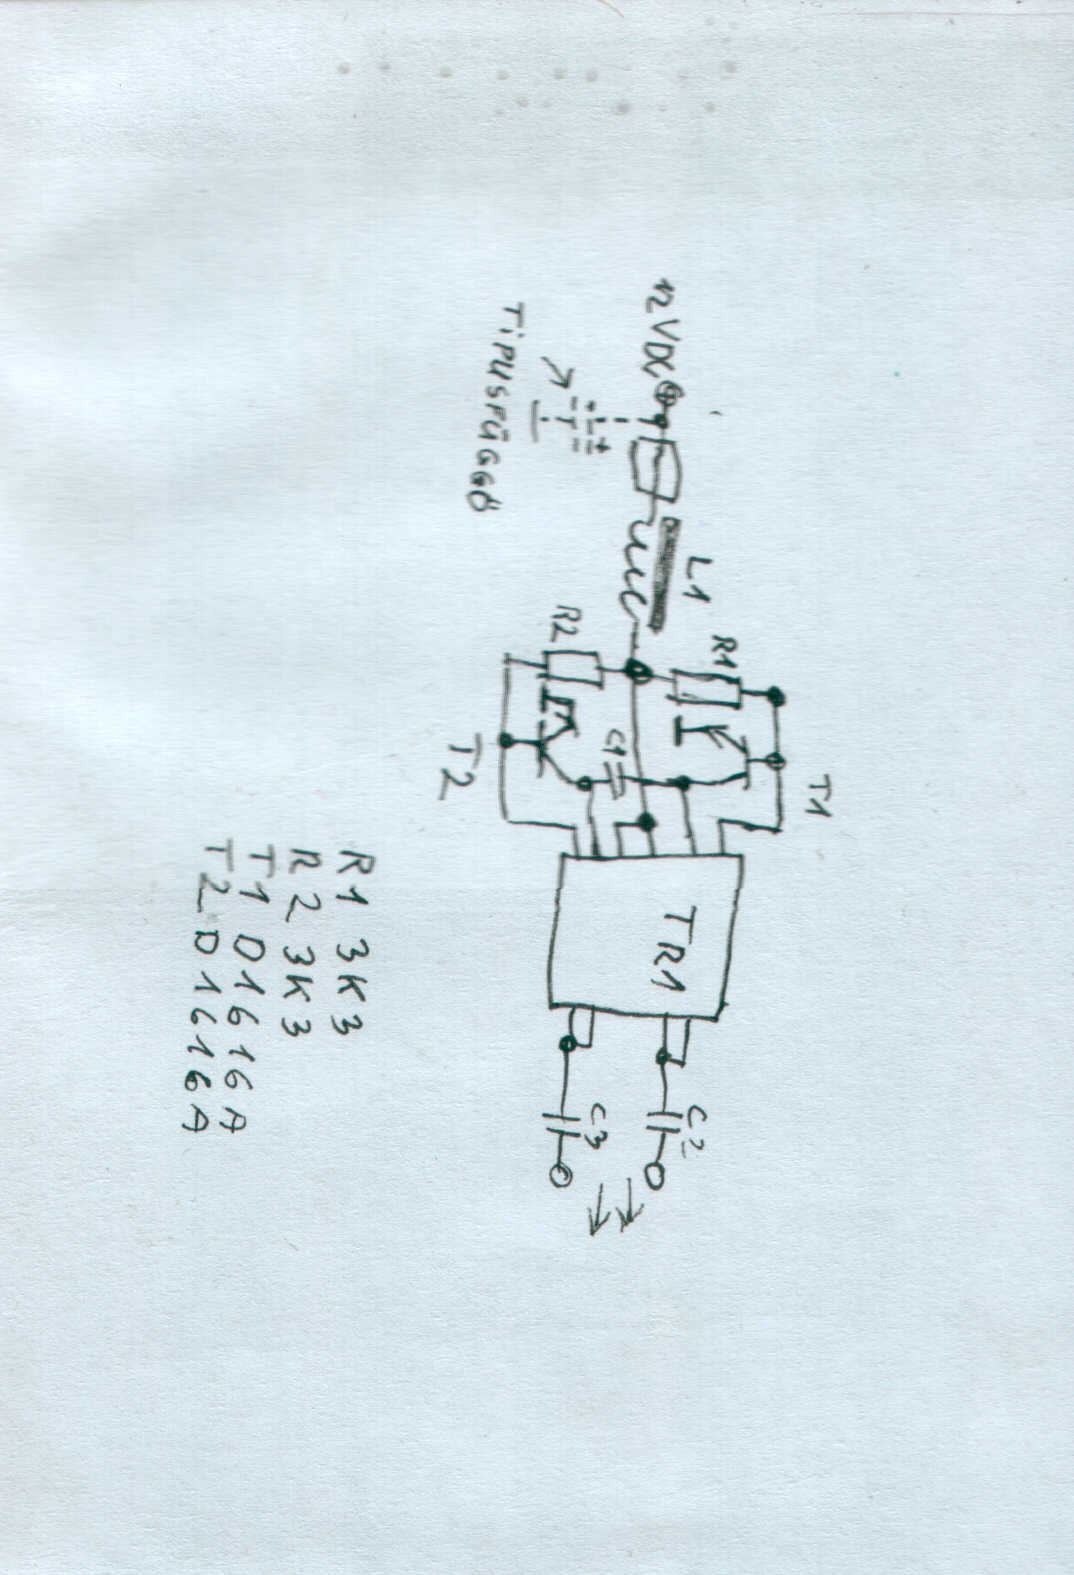 12VDC
TiPUSFÜGGŐ
L1
R1
T1
R2
C1
T2
TR1
C2
C3
R1 3K3
R2 3K3
T1 D1616A
T2 D1616A